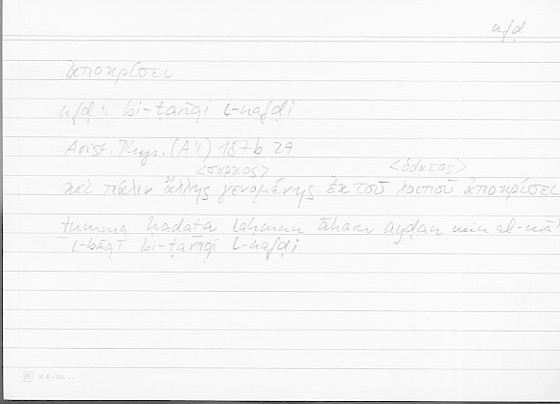 nfḍ
ἀποκρίσει
nfḍ: bi-ṭarīqi l-nafḍi
Arist. Phys. (A4) 187b 29
<σαρκος> <ὕδατος>
καὶ πάλιν ἄλλης γενομένης ἐκ τοῦ λοιποῦ ἀποκρίσει
ṯumma ḥadaṯa laḥmun āḫaru ayḍan min al-māʾ
l-bāqī bi-ṭarīqi l-nafḍi